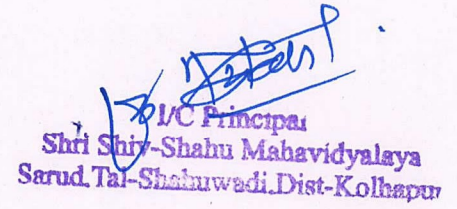 I/C Principal
Shri Shiv-Shahu Mahavidyalaya
Sarud, Tal-Shahuwadi, Dist-Kolhapur